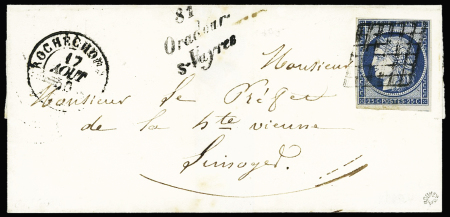 81
Oradour-
s-Vayres
ROCHECHOU
17
AOUT
Monsieur
25 c POSTES 25 c
Monsieur Le Préfet
de la hte vienne
Limoges.